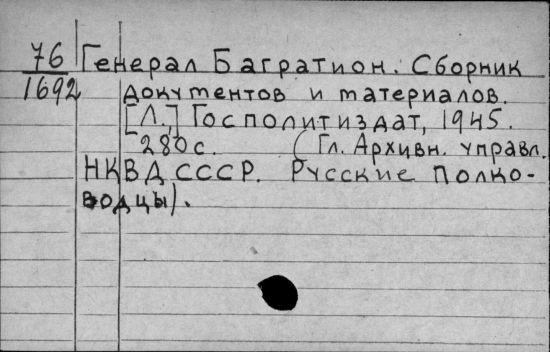 76 Генерал Багратион. Сборник
1692 документов и материалов.
[Л.,] Госполитиздат, 1945.
280 с. (Гл. Архивн. управл.
НКВД СССР. Русские полко-
водцы).